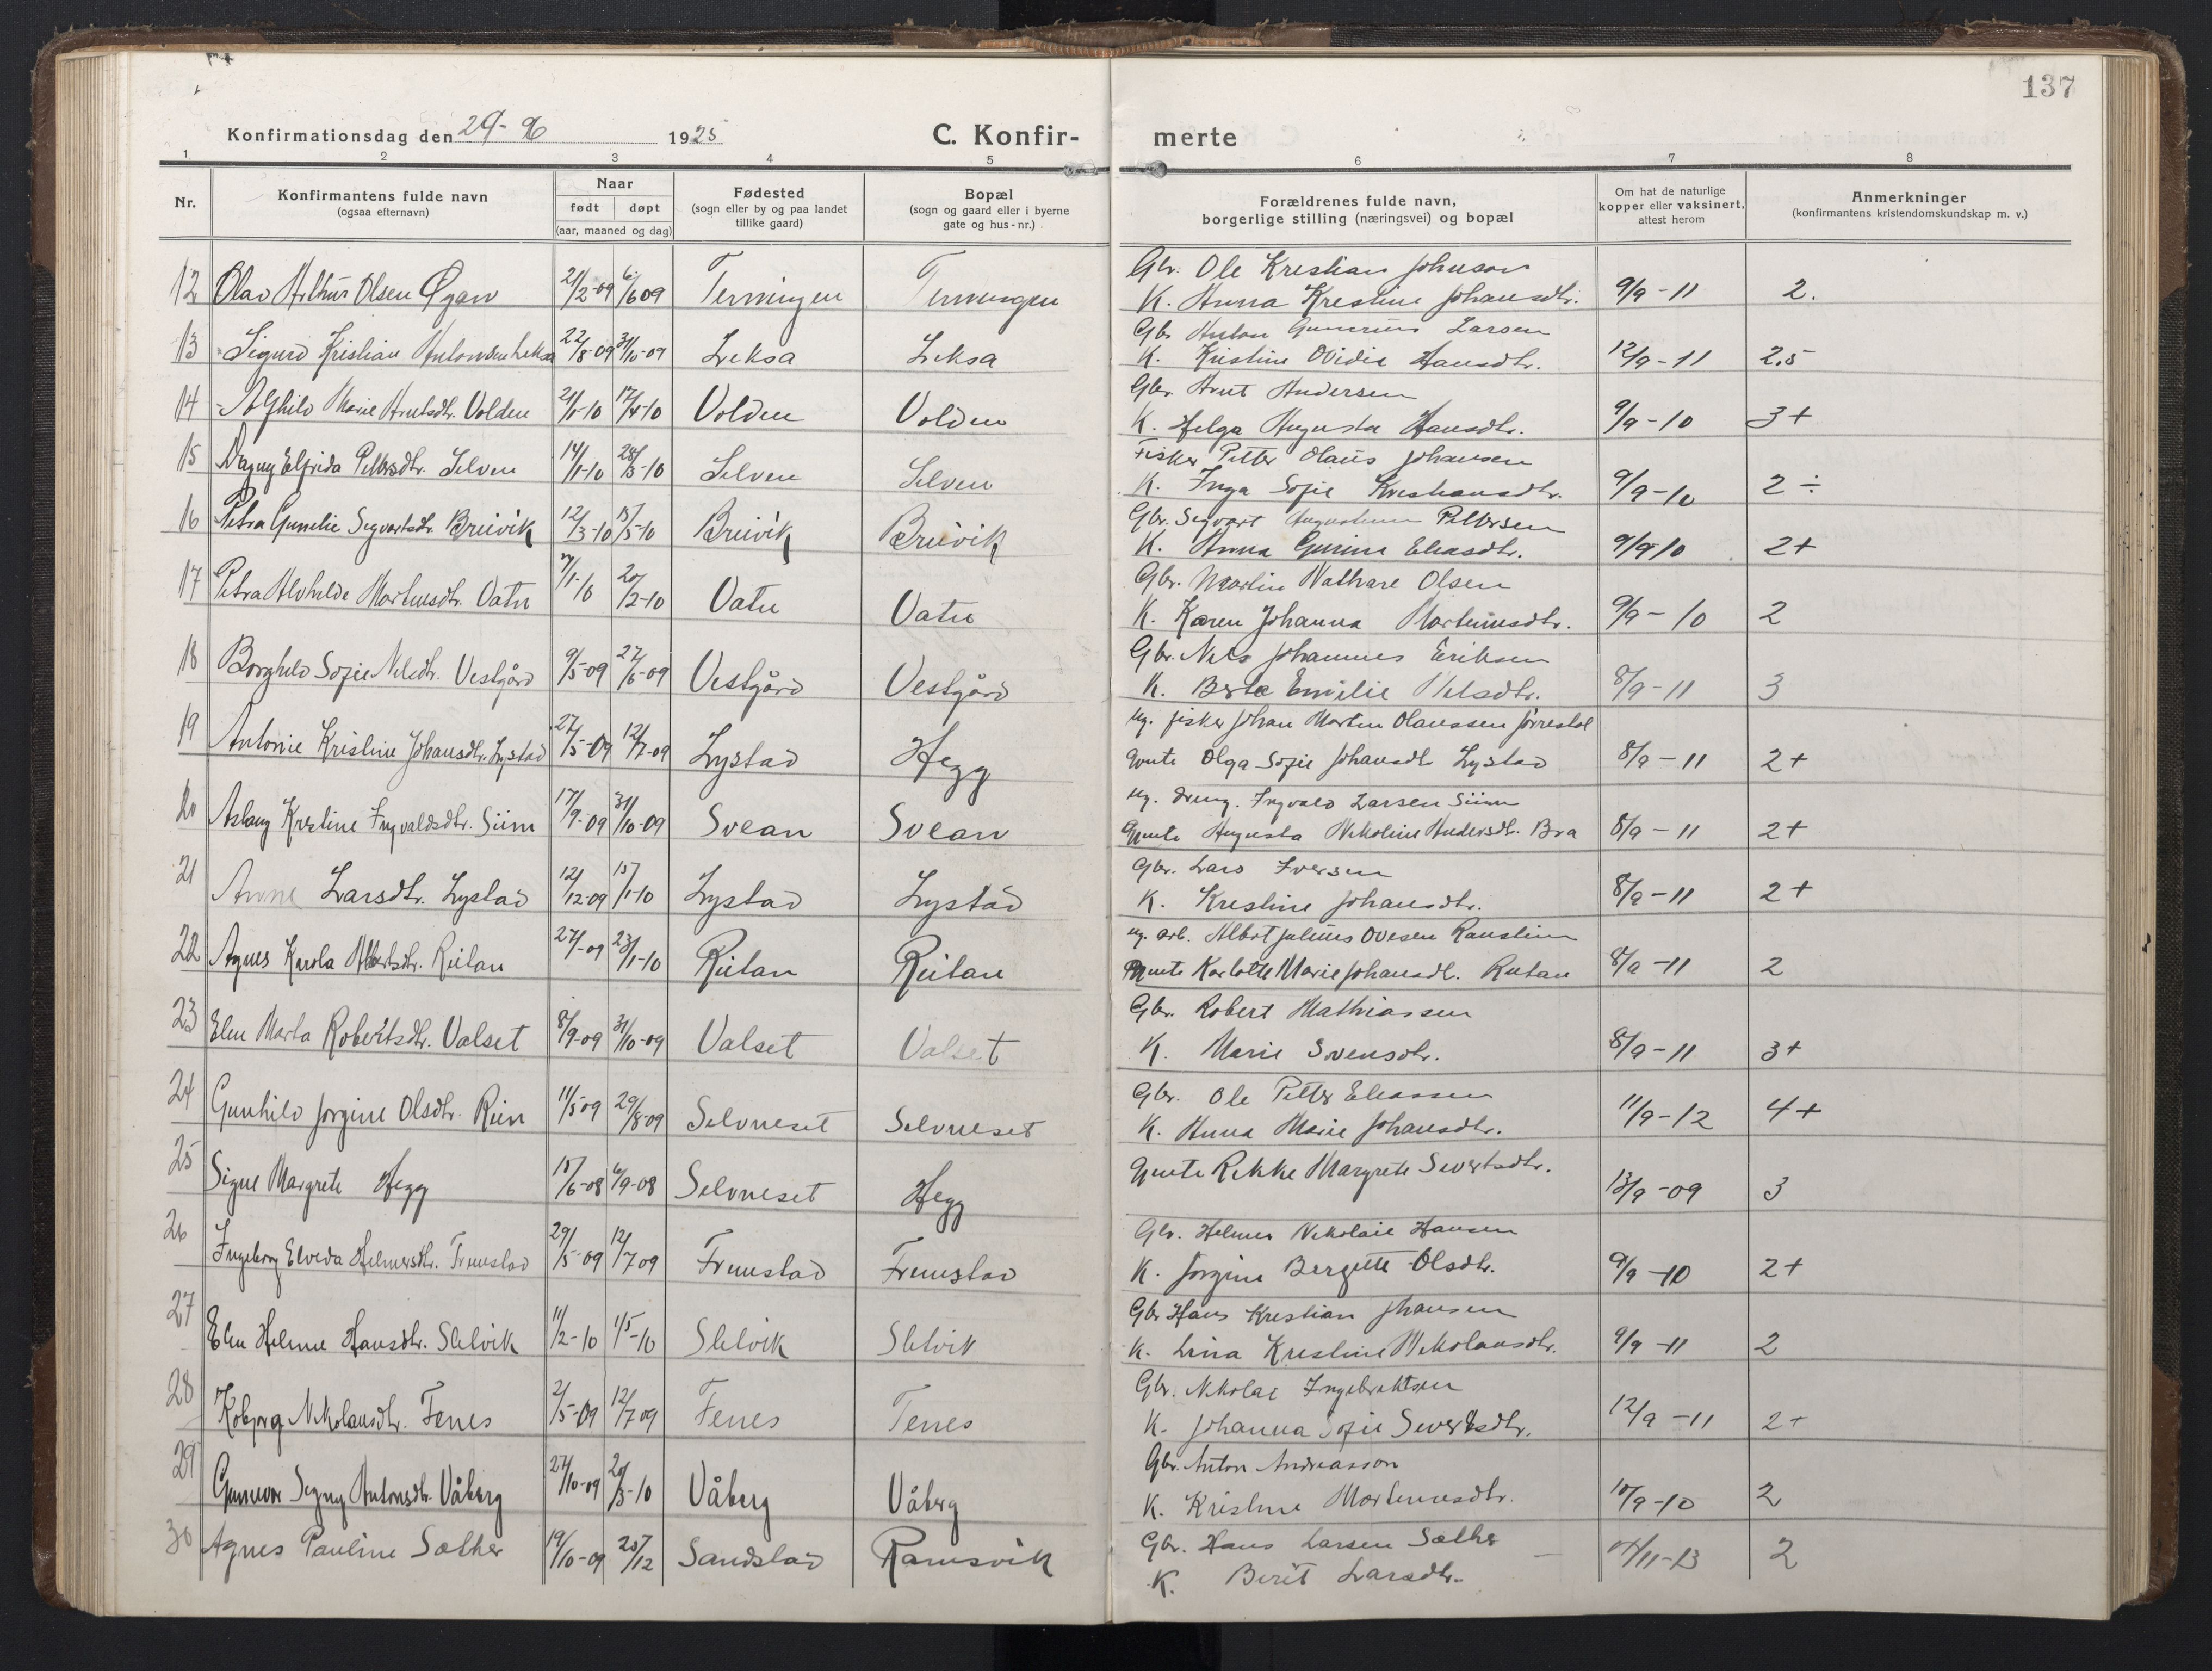 137
Konfirmationsdag den 29-96 1925 C. Konfir- merte
1 2 3 4 5 6 7 8
Nr. Konfirmantens fulde navn (ogsaa efternavn) Naar født døpt (aar, maaned og dag) Fødested (sogn eller by og paa landet tillike gaard) Bopæl (sogn og gaard eller i byerne gate og hus-nr.) Forældrenes fulde navn, borgerlige stilling (næringsvei) og bopæl Om hat de naturlige kopper eller vaksinert, attest herom Anmerkninger (konfirmantens kristendomskundskap m. v.)
Gbr. Ole Kristian Johnson
12 Olav Arthur Olsen Øyan 21/2-09 6/6 09 Terningen Terningen K. Anna Kristine Johansdtr. 9/9-11 2.
Gbr. Anton Gunerius Larsen
13 Sigurd Kristian Antonsen Leksa 22/8-09 31/10-09 Leksa Leksa K. Kristine Ovidia Hansdtr. 12/9-11 2.5
Gbr. Arnt Andersen
14 Alfhild Marie Arntsdtr. Volden 21/1-10 17/4-10 Volden Volden K. Helga Augusta Hansdtr. 9/9-10 3+
Fisker Petter Olaus Johansen
15 Dagny Elfrida Pettersdtr. Selven 14/1-10 28/3-10 Selven Selven K. Inga Sofie Kristiansdtr. 9/9-10 2÷
Gbr. Sigvart Augustinus Pettersen
16 Petra Gunelie Sigvartsdtr. Breivik 12/3-10 15/5-10 Breivik Breivik K. Anna Gurine Eliasdtr. 9/9 10 2+
Gbr. Martin Nathare Olsen
17 Petra Alvhilde Martinsdtr. Vatn 7/1-10 20/2-10 Vatn Vatn K. Karen Johanna Martinusdtr. 9/9-10 2
Gbr. Nils Johannes Eriksen
18 Borghild Sofie Nilsdtr. Vestgård 9/5-09 27/6-09 Vestgård Vestgård K. Berte Emilie Nelsdtr. 8/9-11 3
Ug. fisker Johan Martin Olaussen Jørrestol
19 Antonie Kristine Johansdtr. Lystad 27/5-09 12/7-09 Lystad Hegg Gente Olga Sofie Johansdt Lystad 8/9-11 2+
Ug. dreng. Ingvald Larsen Siim
20 Aslaug Kristine Ingvaldsdtr. Siim 17/9-09 31/10-09 Svean Svean Gente Augusta Nikoline Andersdt. Bra 8/9-11 2+
Gbr. Lars Iversen
21 Anne Larsdtr. Lystad 12/12-09 15/1-10 Lystad Lystad K. Kristine Johansdtr. 8/9-11 2+
ug. arb. Albert Julius Ovesen Ranstien
22 Agnes Karola Albertsdtr. Reitan 27/-09 23/1-10 Reitan Reitan Gente Karlotte Marie Johansdt. Reitan 8/9-11 2
Gbr. Robert Mathiassen
23 Elen Marta Robertsdtr. Valset 8/9-09 31/10-09 Valset Valset K. Marie Svensdtr. 8/9-11 3+
Gbr. Ole Petter Eliassen
24 Gunhild Jorgine Olsdtr. Rein 11/5 09 29/8-09 Selvneset Selvneset K. Anna Marie Johansdtr. 11/9-12 4+
25 Signe Margrete Hegg 15/6-08 6/9-08 Selvneset Hegg Gente Rikke Margrete Sivertsdtr. 13/9-09 3
Gbr. Helmer Nikolaie Hansen
26 Ingeborg Elveda Helmersdtr. Fremstad 29/5-09 12/7 09 Fremstad Fremstad K. Jorgine Bergitte Olsdtr. 9/9-10 2+
Gbr Hans Kristian Johansen
27 Elen Helene Hansdtr. Sletvik 11/2-10 1/5-10 Sletvik Sletvik K. Lina Kristine Nikolausdtr. 9/9-11 2
Gbr. Nikolai Ingebriktsen
28 Kobjørg Nikolausdtr. Fenes 2/5-09 12/7 09 Fenes Fenes K. Johanna Sofie Sivertsdtr. 12/9-11 2+
Gbr. Anton Andreasson
29 Gunvor Signy Antonsdtr. Våberg 27/10-09 20/3-10 Våberg Våberg K. Kristine Martinusdtr. 10/9-10 2
Gbr. Hans Larsen Sæther
30 Agnes Pauline Sæther 19/10-09 20/12 Sandstad Ramsvik K. Berit Larsdtr. /11-13 2